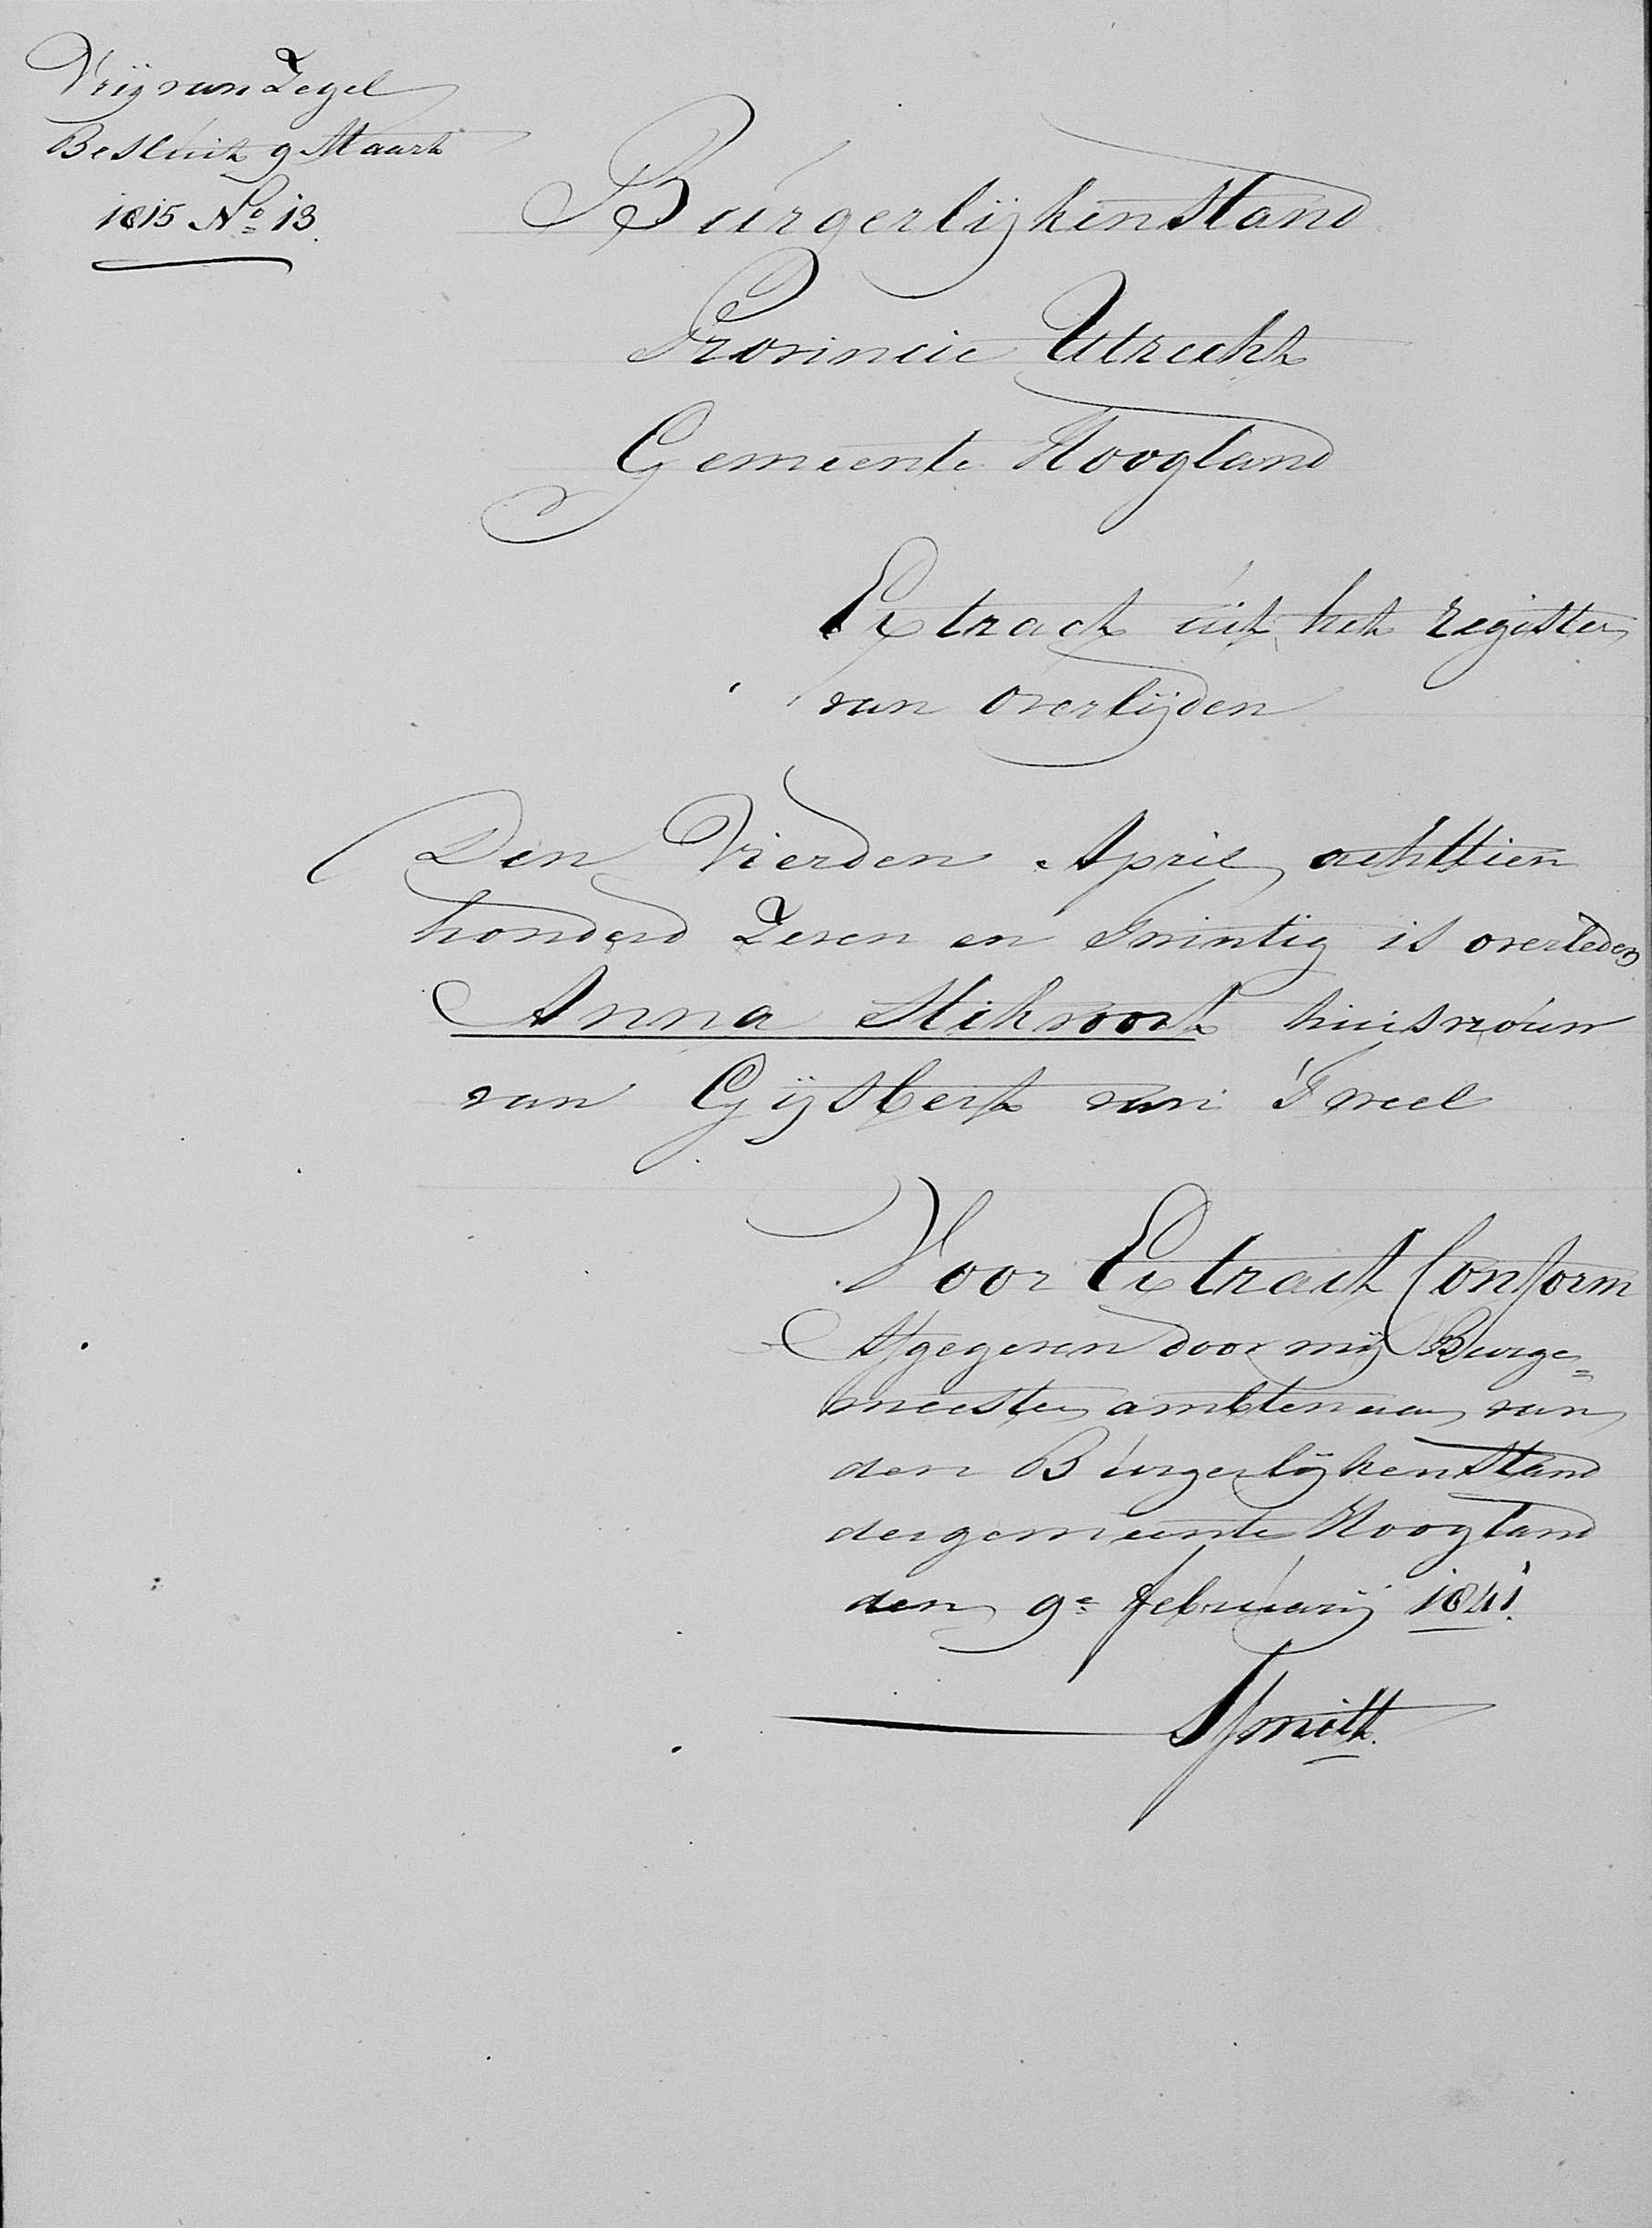 Vrij van Zegel
Besluit 9 Maart
1815 No 13.
Burgerlijken Stand
Provincie Utrecht
Gemeente Hoogland
Extract uit het register
van overlijden
Den Vierden April achttien
honderd Zeven en Twintig is overleden
Anna Stikvoort huisvrouw
van Gijsbert van Tweel
Voor Extract Conform
Afgegeven door mij Burge=
meester ambtenaar van
den Burgerlijken Stand
der gemeente Hoogland
den 9e februarij 1841.